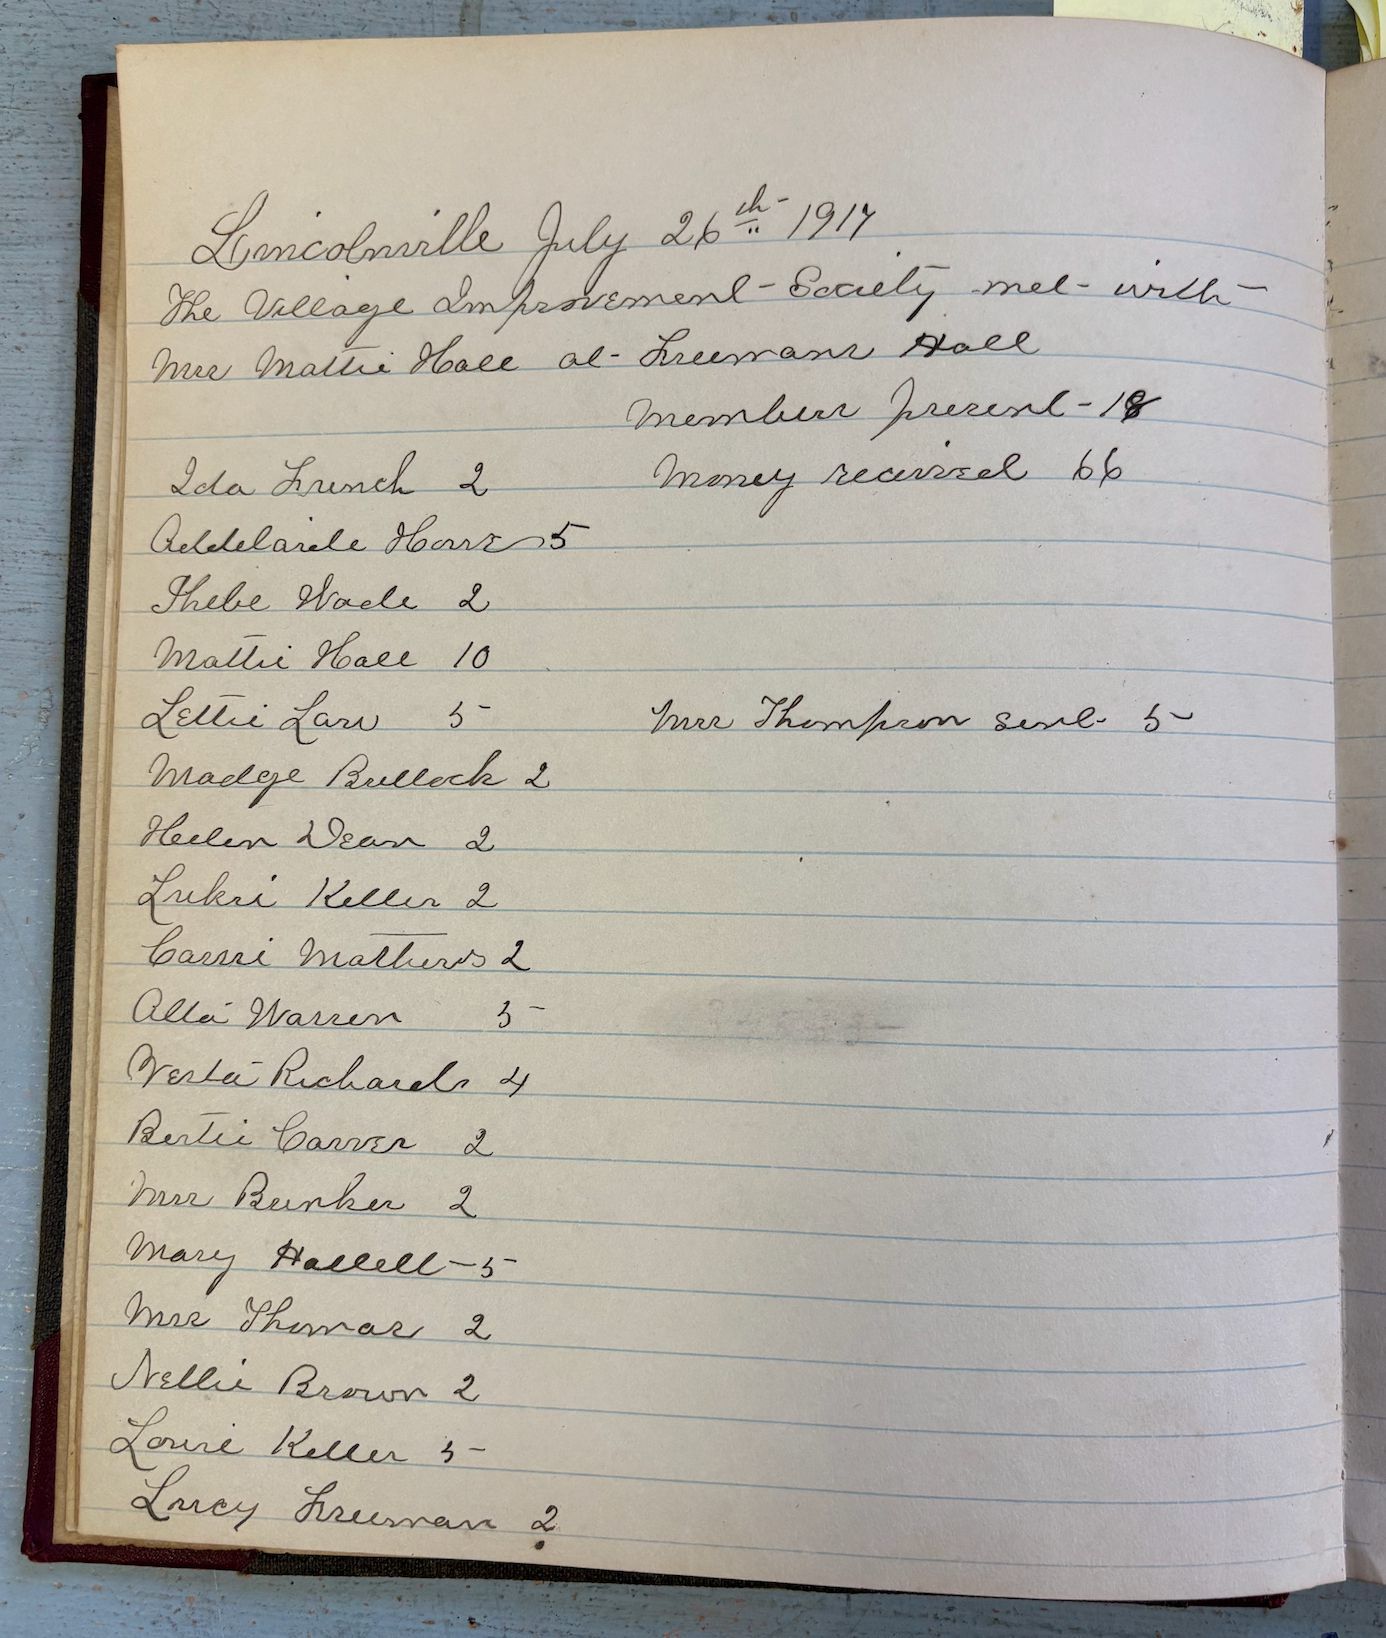 Lincolnville July 26th 1917
The Village Improvement Society met with
Mrs Mattie Hall at Freemans Hall
Members present 18
Ida French 2 Money received 66
Addelaide Morse 5
Phebe Wade 2
Mattie Hall 10
Lettie Law 5 Mrs Thompson sent 5
Madge Bullock 2
Helen Dean 2
Keller 2
Carrie Mathews 2
Alta Warren 5
Vesta Richards 4
Bertie Carver 2
Mrs Bunker 2
Mary Hallett 5
Mrs Thomas 2
Nellie Brown 2
Louise Keller 5
Lucy Freeman 2